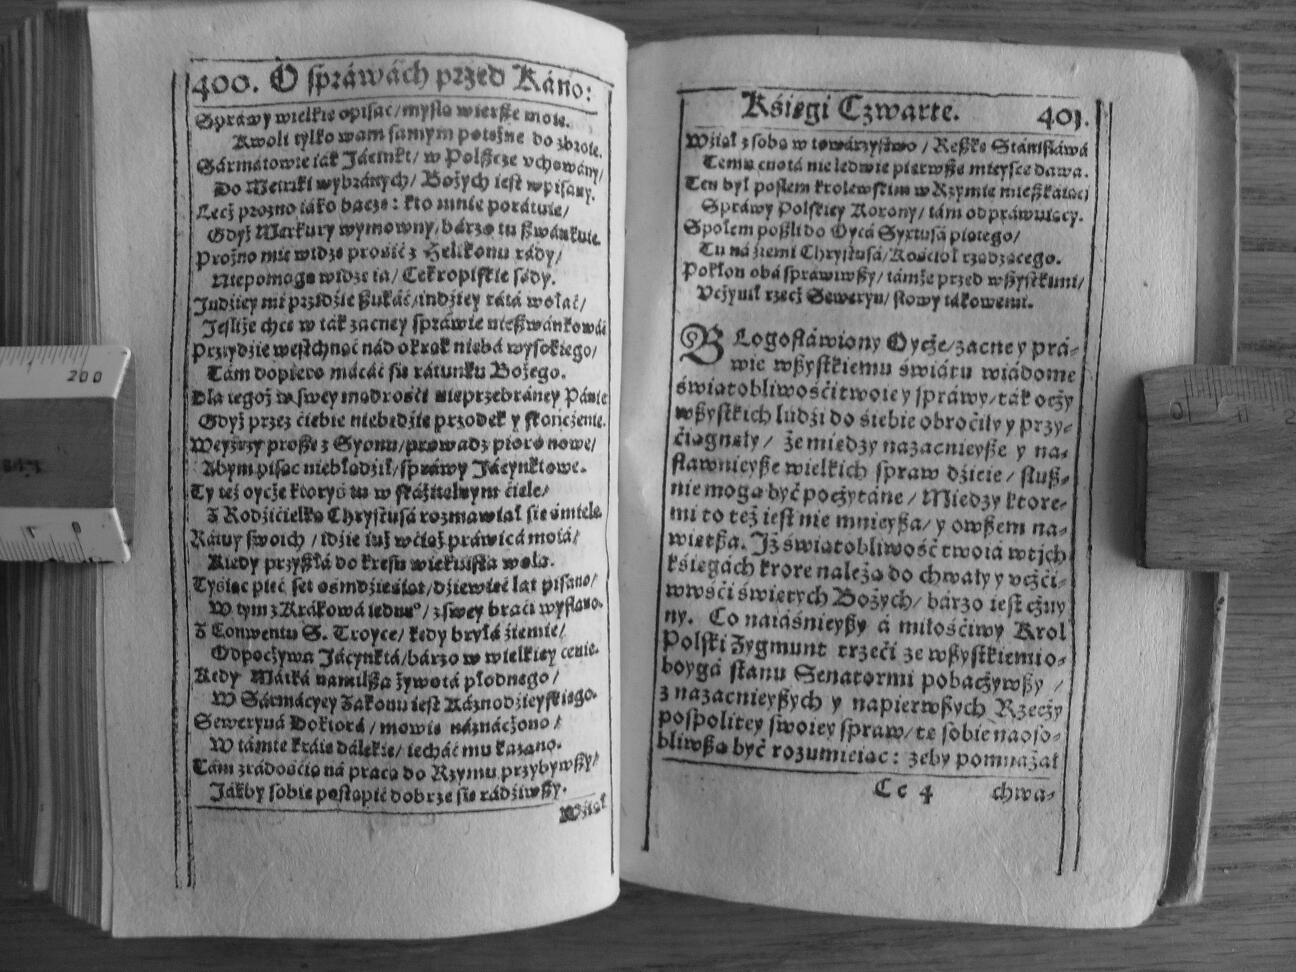 400. O spráwách przed Káno:
Spráwy wielkie opisáć/ myślą wiersze moie.
Kwoli tylko wam samym potężne do zbroie.
Sármatowie iák Jácinkt/ w Polszcze vchowány/
Do Metriki wybránych/ Bożych iest wpisany.
Lecż prożno iáko baczę: kto mnie porátuie/
Gdyż Merkury wymowny/ bárzo tu szwánkuie.
Prożno mie widzę prośić z Helikonu rády/
Niepomogą widzę ia/ Cekropiskie sády.
Jndźiey mi przidźie szukáć/ indźiey rátá wołáć/
Jesliże chcę w ták zacney spráwie nieszwánkowáć
Przydźie westchnąć nád okrąk niebá wysokiego/
Tám dopiero mácáć się rátunku Bożego.
Dla tegoż w swey mądrośći nieprzebráney Pánie
Gdyż przez ćiebie niebędźie przodek y skończenie.
Weyźrzy proszę z Syonu/ prowadź pioro nowe/
Abym pisąc niebłądźił/ spráwy Jácynktowe.
Ty też oycże ktoryś tu w skáźitelnym ćiele/
Z Rodźićielką Chrystusá rozmawiał się śmiele.
Rátuy swoich / idźie iuż wćiąż práwicá moiá/
Kiedy przyszłá do kresu wiekuista wola.
Tyśiąc pięć set ośmdźieśiąt/ dźiewięć lat pisano/
W tym z Krákowá iednego/ z swey bráći wysłano.
Z Conwentu S. Troyce/ kędy bryłá źiemie/
Odpocżywa Jácynktá/ bárzo w wielkiey cenie.
Kędy Mátká namilsza żywotá płodnego/
W Sármácyey Zakonu iest Káznodźieyskiego.
Seweryná Doktorá / mowię náznácżono /
W támte kráie dálekie/ iecháć mu kazano.
Tám z rádośćią ná pracą do Rzymu przybywszy/
Jákby sobie postąpić dobrze się rádźiwszy.
Wźiął
Kśięgi Czwarte. 401.
Wźiął z sobą w towárzystwo / Reszkę Stánisláwá
Temu cnotá nie ledwie pierwsze mieysce dawa.
Ten był posłem krolewskim w Rzymie mieszkáiąc
Spráwy Polskiey Korony/ tám odpráwuiący.
Społem poszli do Oycá Syxtusá piątego/
Tu ná źiemi Chrystusá/ Kośćioł rządzącego.
Pokłon obá spráwiwszy/ támże przed wszystkimi/
Vcżynił rzecż Seweryn/ słowy tákowemi.
BLogosłáwiony Oycże/ zacney prá-
wie wszystkiemu świátu wiádome
świątobliwośći twoiey spráwy/ ták ocży
wszystkich ludźi do śiebie obroćiły y przy-
ćiągnęły / że miedzy nazacnieysze y na-
sławnieysze wielkich spraw dźieie / słusz-
nie mogą być pocżytáne/ Miedzy ktore-
mi to też iest nie mnieysza/ y owszem na-
więtsza. Jż świątobliwość twoiá w tych
kśięgách ktore należą do chwały y vcżći-
wośći świętych Bożych/ bárzo iest cżuy
ny. Co naiáśnieyszy á miłośćiwy Krol
Polski Zygmunt trzeći ze wszystkiemi o-
boygá stanu Senatormi pobacżywszy /
z nazacnieyszych y napierwszych Rzecży
pospolitey swoiey spraw/ tę sobie naoso-
bliwszą być rozumieiąc: żeby pomnażał
Cc 4 chwa-